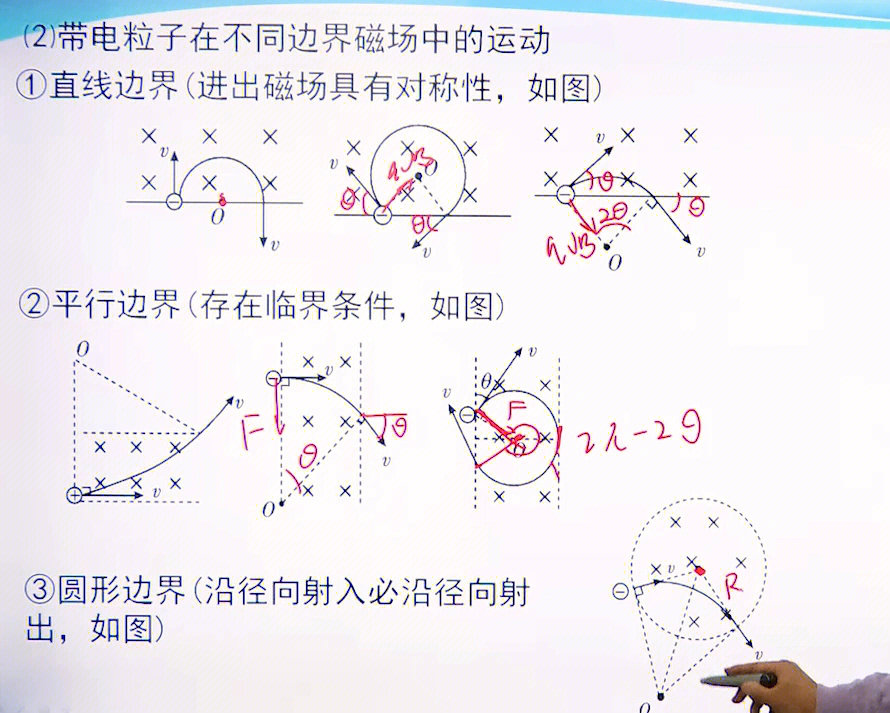 (2)带电粒子在不同边界磁场中的运动
①直线边界(进出磁场具有对称性，如图)
v O v
v θ qvB O θ v
v θ qvB 2θ O θ v
②平行边界(存在临界条件，如图)
O v v
v F θ θ v O
v v θ F 2π-2θ
③圆形边界(沿径向射入必沿径向射
出，如图)
v R v O